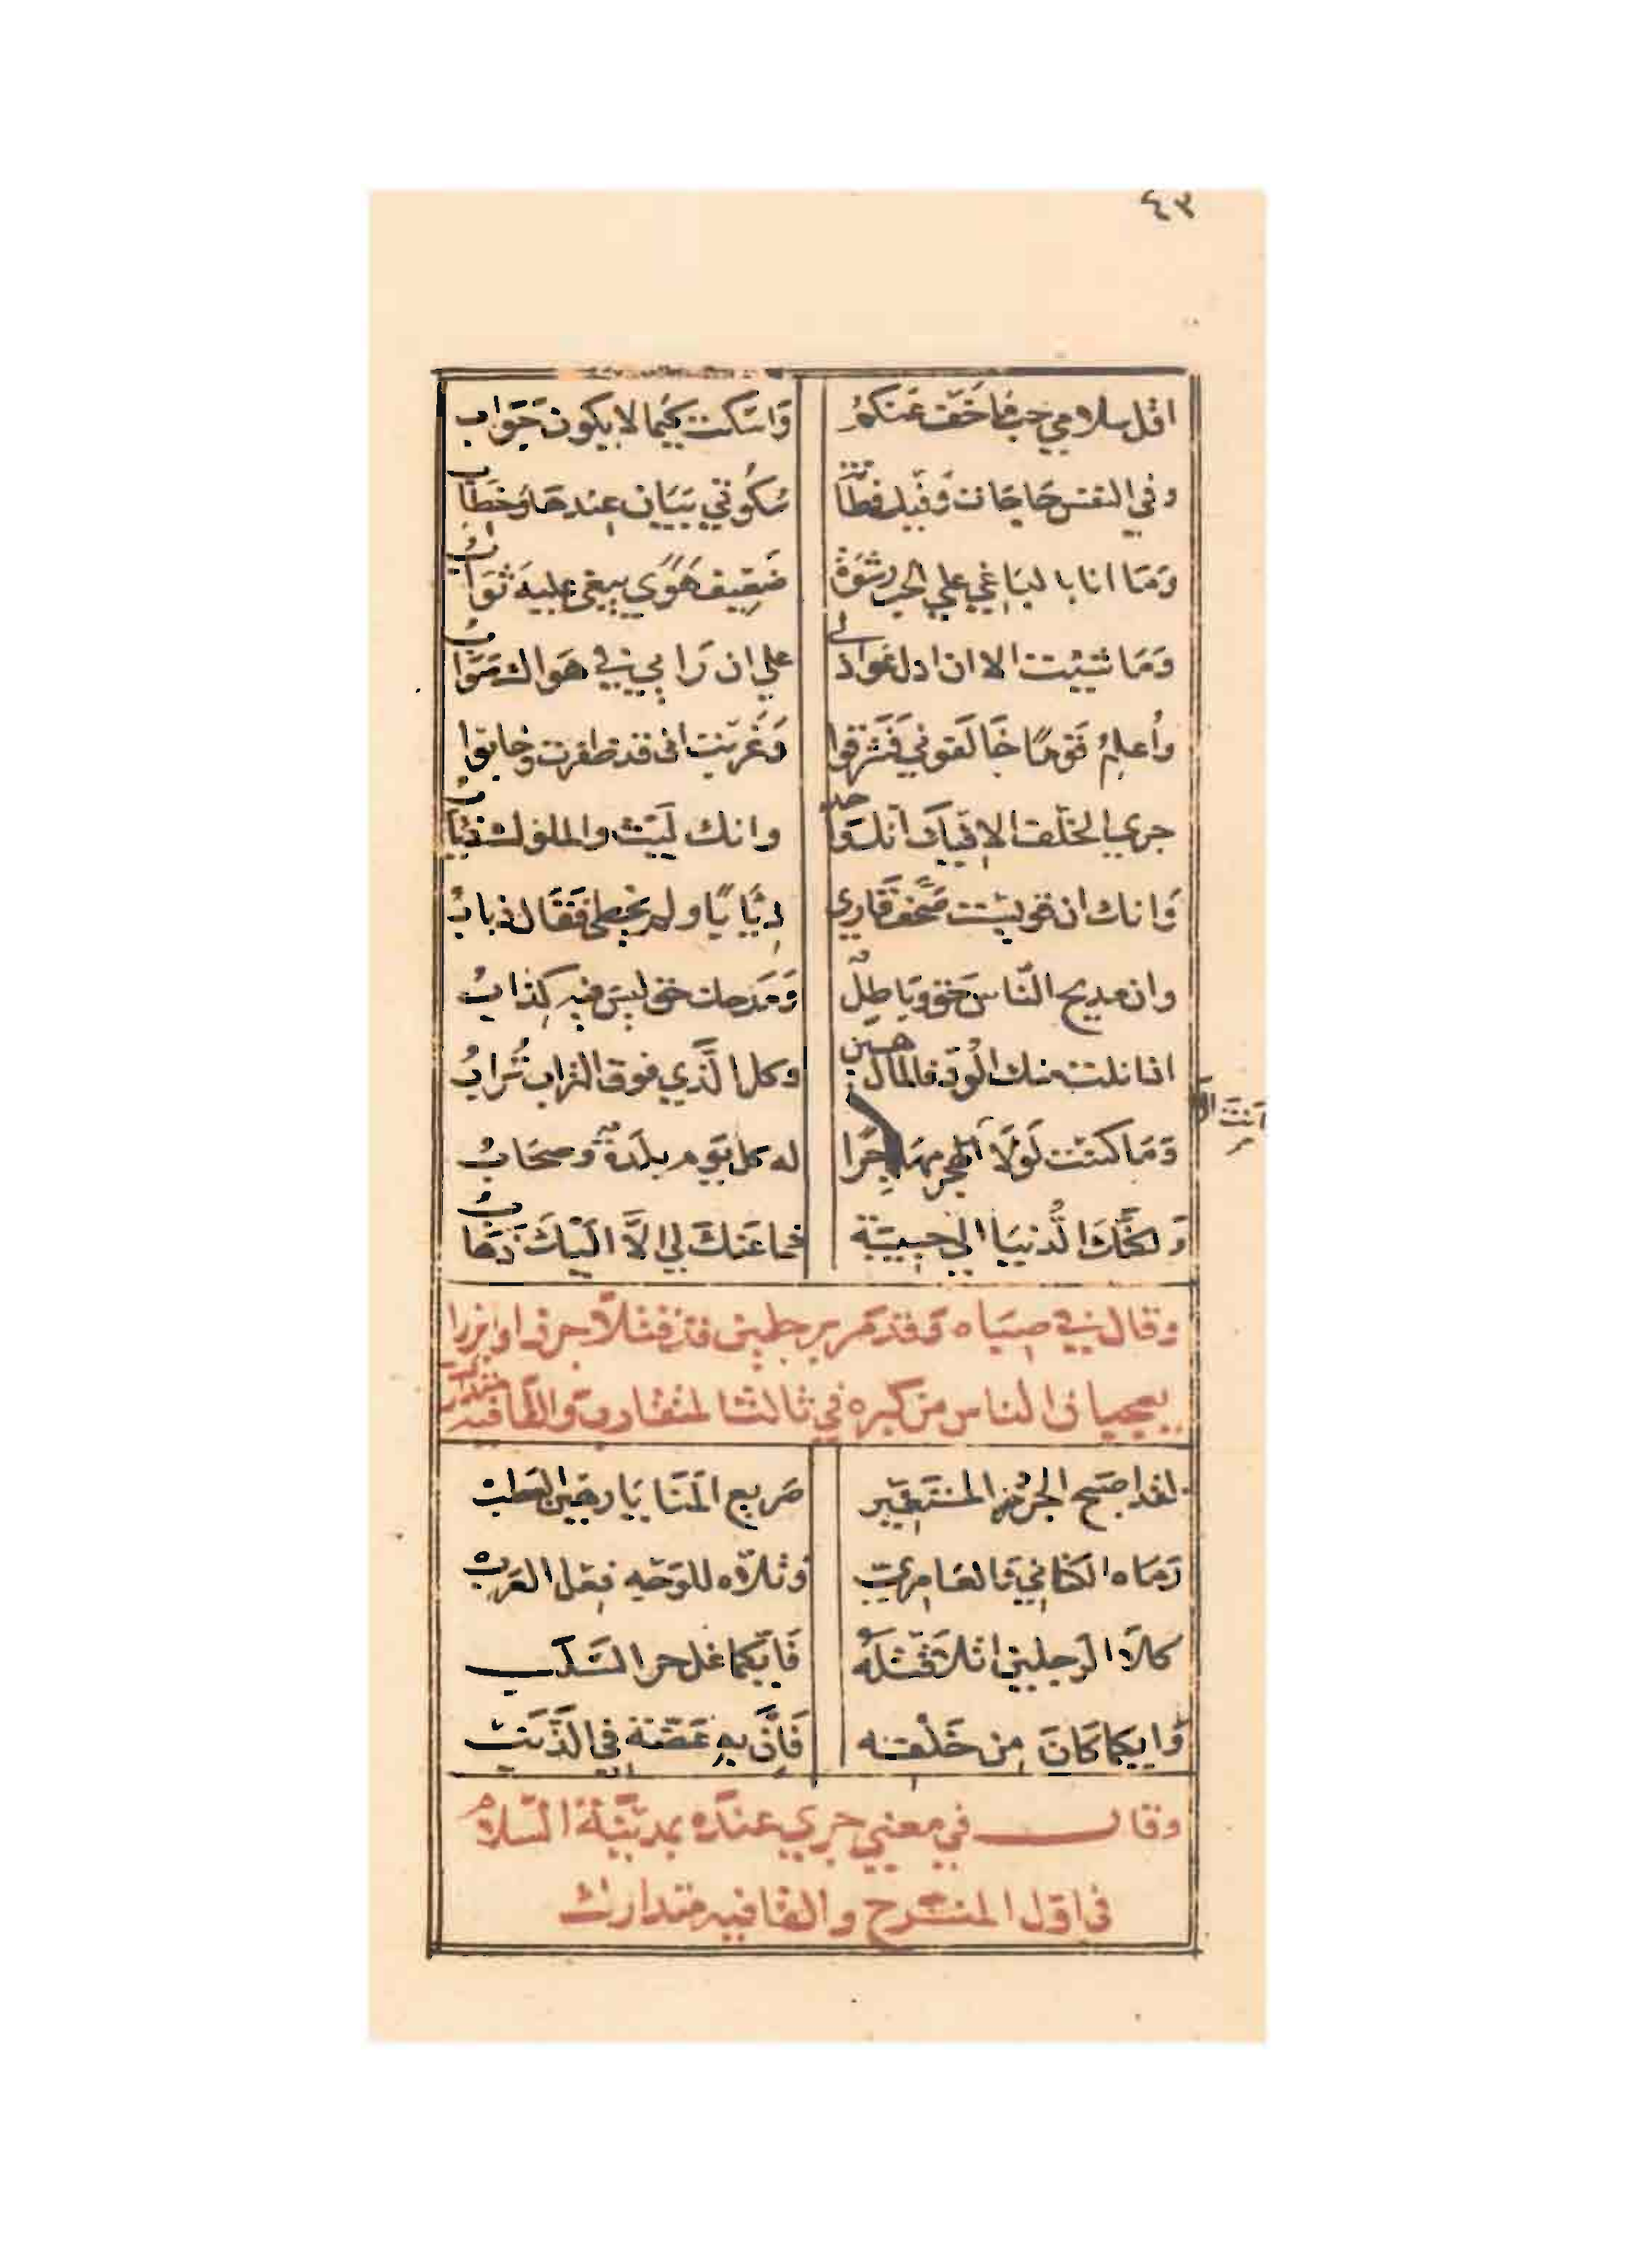 ٤٣
اقل سلامي حب ما خف عنكم وَاسكت كيما لا يكون جَوَاب
وفي النفس حَاجَات وَفيك فطَانة سُكُوتي بَيَان عندهَا وَخطَابُ
وَمَا انا بالباغي علي الحب رشوَة ضَعِيف هَوًي يبغي عليه ثوَابُ
وَمَا شيت الا ان ادل عواذلي علي ان رَايي في هَواك صَوَابُ
وَأُعلِمُ قَومًا خَالَفوني فَشَرقوا وَغَربت اني قد ظفرت وخابوا
جري الخلف الا فيك انك وَاحد وانك لَيث والملوك ذئابُ
وَانك ان قويست صَحف قَاري ذِيَابًا ولم يخطي فَقَال ذبابُ
وان مديح النّاس حَق وبَاطِلٌ وَمَدحك حق ليسَ فيه كِذابُ
اذا نلت منك الوُد فالمال هين وكل الَّذي فوق التراب تُرابُ
وَمَا كنت لَولَا انت الا مهَاجِرًا له كل يَوم بلدَة وصحَابُ
وَلكنّك الدُّنيَا الي حبيبَة فما عَنكَ لي الَّا الَيكَ ذَهَابُ
وقال في صبَاه وَقد مَر برجلين قد قتلا جرذا وابرزا
يعجبان الناس من كبره في ثالث المتقارب والقافيه متدارك
لقد اصبَح الجرذ المستَغير صَريع المَنَايَا رهين العَطب
رَمَاه الكنَاني وَالعَامري وَتلّاه للوَجه فِعل العَرب
كلَا الرّجلين اتلا قَتلَهُ فَايّكما غل حر السَّلَب
وَايكما كَانَ مِن خَلفه فَاِنَّ بهِ عَضّة في الذَّنَب
وقال في معني جري عنده بمديَنة السّلام
في اول المنسرح والقافيه متدارك